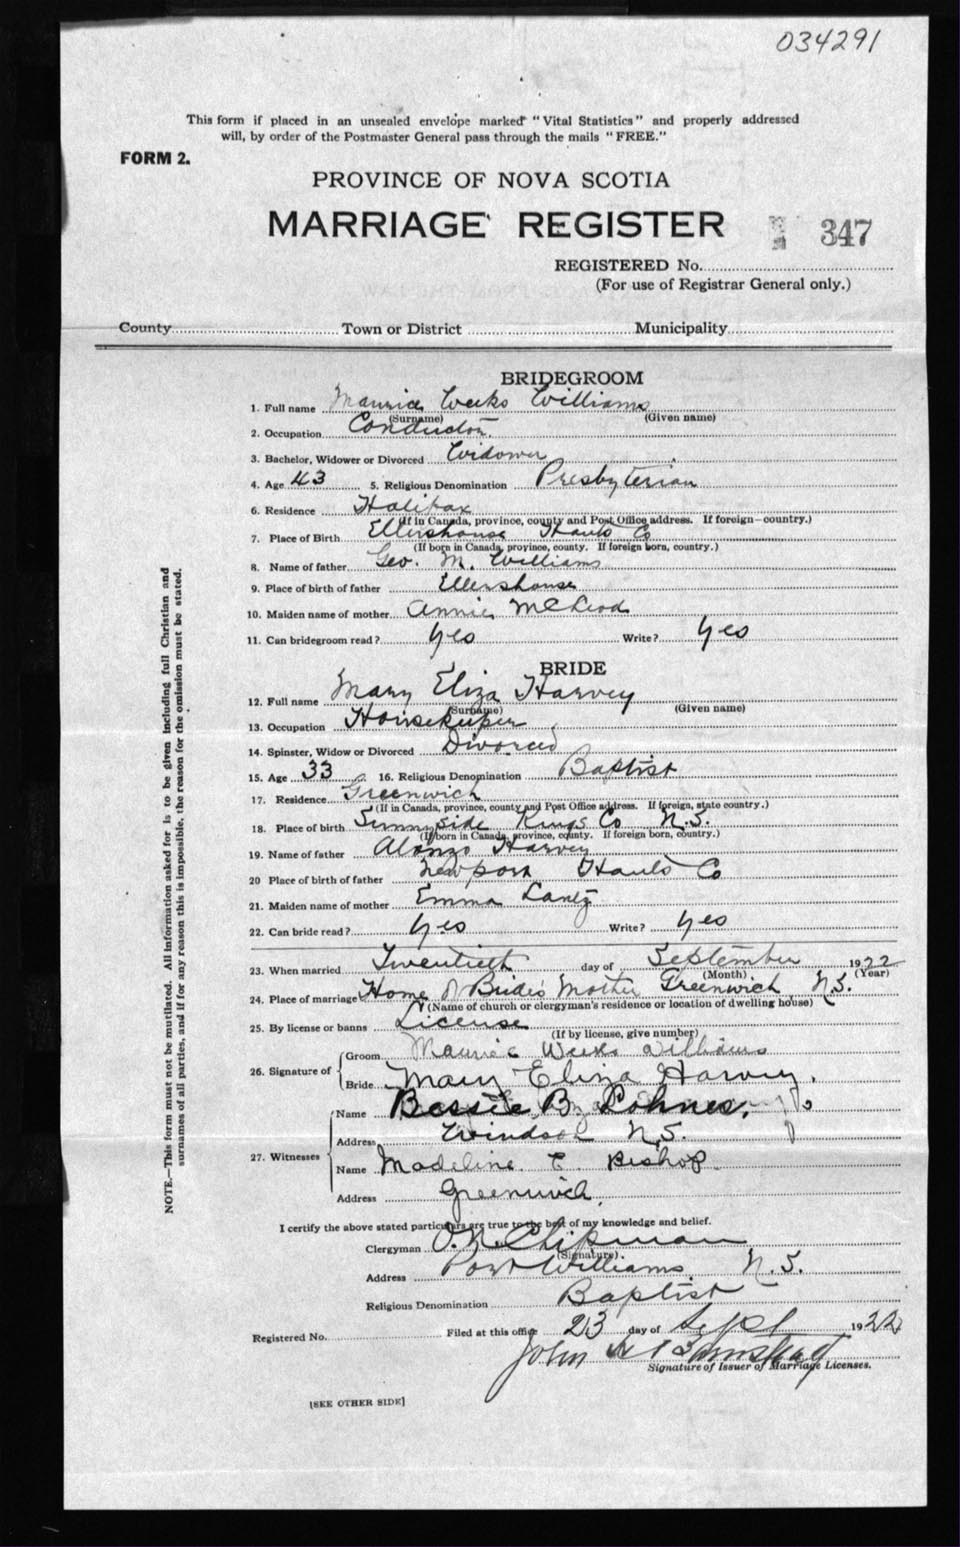 034291
This form if placed in an unsealed envelope marked "Vital Statistics" and properly addressed
will, by order of the Postmaster General pass through the mails "FREE."
FORM 2.
PROVINCE OF NOVA SCOTIA
MARRIAGE REGISTER
347
REGISTERED No.
(For use of Registrar General only.)
County Town or District Municipality
BRIDEGROOM
1. Full name Maurice Weeks Williams
(Surname) (Given name)
2. Occupation Conductor
3. Bachelor, Widower or Divorced Widower
4. Age 43 5. Religious Denomination Presbyterian
6. Residence Halifax
(If in Canada, province, county and Post Office address. If foreign—country.)
7. Place of Birth Ellershouse Hants Co
(If born in Canada, province, county. If foreign born, country.)
8. Name of father Geo. M. Williams
9. Place of birth of father Ellershouse
10. Maiden name of mother Annie McLeod
11. Can bridegroom read? Yes Write? Yes
BRIDE
12. Full name Mary Eliza Harvey
(Surname) (Given name)
13. Occupation Housekeeper
14. Spinster, Widow or Divorced Divorced
15. Age 33 16. Religious Denomination Baptist
17. Residence Greenwich
(If in Canada, province, county and Post Office address. If foreign, state country.)
18. Place of birth Sunnyside Kings Co N.S.
(If born in Canada, province, county. If foreign born, country.)
19. Name of father Alonzo Harvey
20 Place of birth of father Newport Hants Co
21. Maiden name of mother Emma Lantz
22. Can bride read? Yes Write? Yes
23. When married Twentieth day of September 1922
(Month) (Year)
24. Place of marriage Home of Brides Mother Greenwich N.S.
(Name of church or clergyman's residence or location of dwelling house)
25. By license or banns License
(If by license, give number)
26. Signature of
Groom Maurice Weeks Williams
Bride Mary Eliza Harvey.
27. Witnesses
Name Bessie B. Lohnes.
Address Windsor N.S.
Name Madeline E. Bishop.
Address Greenwich
I certify the above stated particulars are true to the best of my knowledge and belief.
Clergyman O.N. Chipman
(Signature)
Address Port Williams N.S.
Religious Denomination Baptist
Registered No. Filed at this office 23 day of Sept 1922
John
Signature of Issuer of Marriage Licenses.
[SEE OTHER SIDE]
NOTE.—This form must not be mutilated. All information asked for is to be given including full Christian and
surnames of all parties, and if for any reason this is impossible, the reason for the omission must be stated.